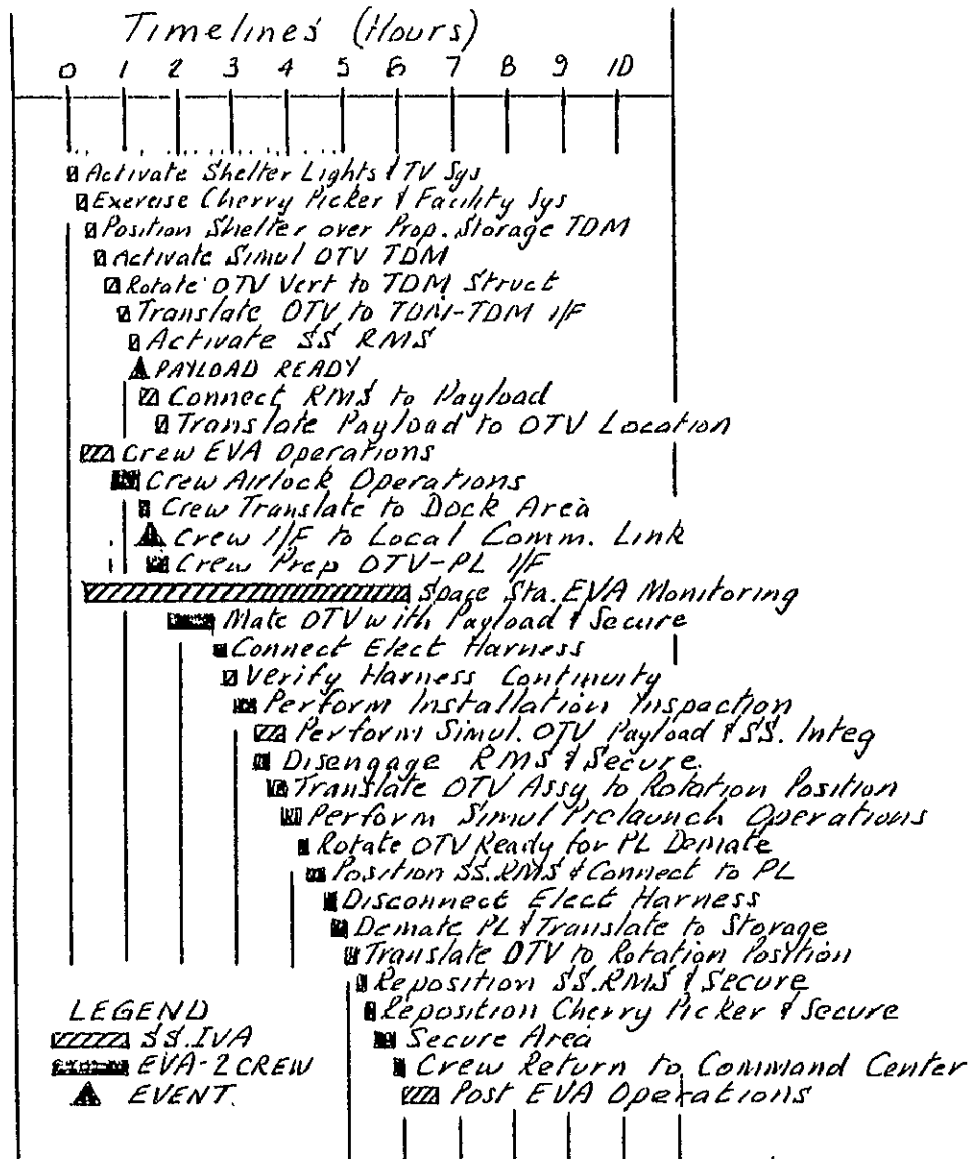 Timelines (Hours)
0 1 2 3 4 5 6 7 8 9 10
Activate Shelter Lights & TV Sys
Exercise Cherry Picker & Facility Sys
Position Shelter over Prop. Storage TDM
Activate Simul OTV TDM
Rotate OTV Vert to TDM Struct
Translate OTV to TDM-TDM I/F
Activate SS RMS
PAYLOAD READY
Connect RMS to Payload
Translate Payload to OTV Location
Crew EVA Operations
Crew Airlock Operations
Crew Translate to Dock Area
Crew I/F to Local Comm. Link
Crew Prep OTV-PL I/F
Space Sta. EVA Monitoring
Mate OTV with Payload & Secure
Connect Elect Harness
Verify Harness Continuity
Perform Installation Inspection
Perform Simul. OTV Payload & SS. Integ
Disengage RMS & Secure.
Translate OTV Assy to Rotation Position
Perform Simul Prelaunch Operations
Rotate OTV Ready for PL Demate
Position SS.RMS & Connect to PL
Disconnect Elect Harness
Demate PL & Translate to Storage
Translate OTV to Rotation Position
Reposition SS.RMS & Secure
Reposition Cherry Picker & Secure
Secure Area
Crew Return to Command Center
Post EVA Operations
LEGEND
SS.IVA
EVA-2 CREW
EVENT.